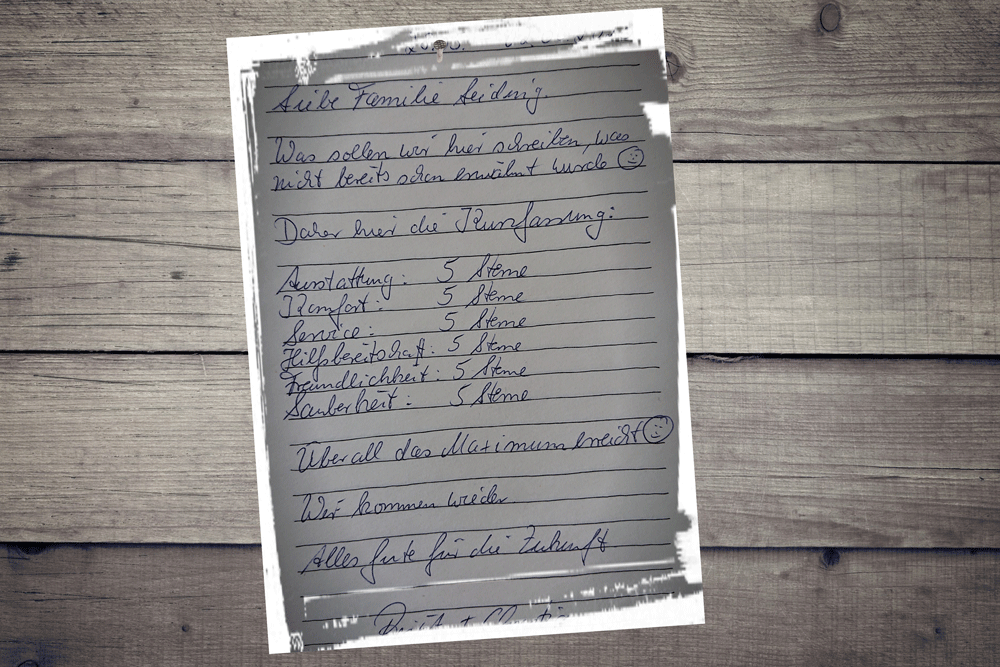 Liebe Familie
Was sollen wir hier schreiben, was
nicht bereits schon erwähnt wurde
Daher hier die Kurzfassung:
Ausstattung: 5 Sterne
Komfort: 5 Sterne
Service: 5 Sterne
Hilfsbereitschaft: 5 Sterne
Freundlichkeit: 5 Sterne
Sauberkeit: 5 Sterne
Überall das Maximum erreicht
Wir kommen wieder
Alles gute für die Zukunft